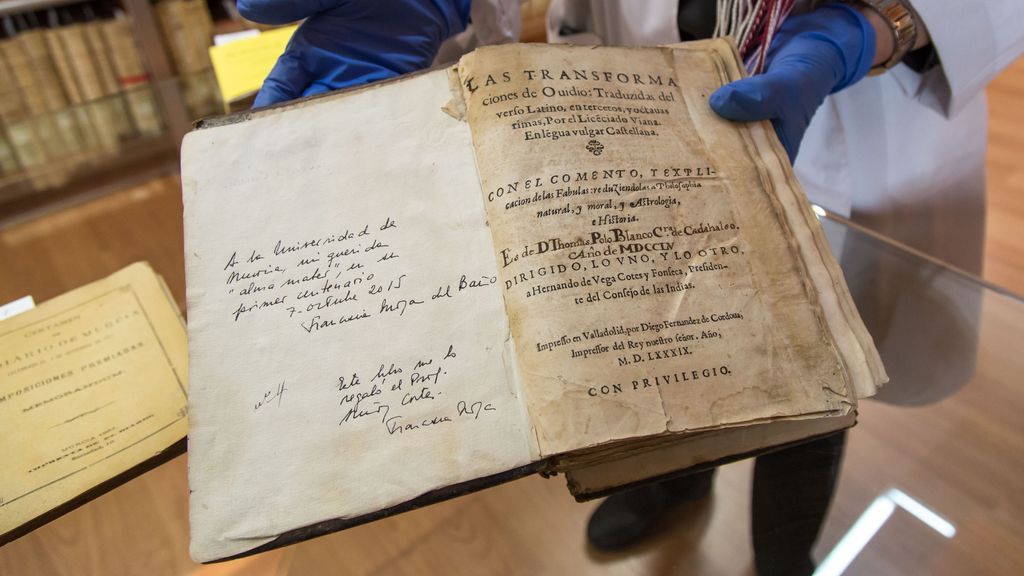 A la Universidad de
Murcia, mi querida
"alma mater" en su
primer centenario
7-octubre 2015
Francisca Moya del Baño
nº 4
Este libro me lo
regaló el Prof.
Muñoz Cortés.
Francisca Moya
LAS TRANSFORMA
ciones de Ouidio: Traduzidas del
verso Latino, en tercetos, y octauas
rimas, Por el Licẽciado Viana.
En lẽgua vulgar Castellana.
CON EL COMENTO, Y EXPLI-
cacion de las Fabulas: reduziendolas a Philosophia
natural, y moral, y Astrologia,
e Historia.
Es de D Thomas Polo Blanco
Año de MDCCLV
DIRIGIDO, LO VNO, Y LO OTRO,
a Hernando de Vega Cotes y Fonseca, Presiden-
te del Consejo de las Indias.
Impresso en Valladolid, por Diego Fernandez de Cordoua,
Impressor del Rey nuestro señor. Año,
M.D.LXXXIX.
CON PRIVILEGIO.
CERTAMEN
DIARIO DE MURCIA
MPOSICIONES PREMIADAS
MEMORANDUM
MURCIA